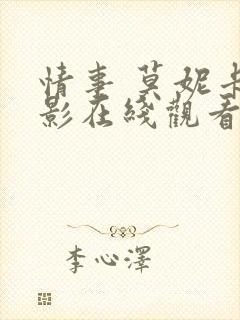 情事 莫妮卡
影在綫觀看
李心澤